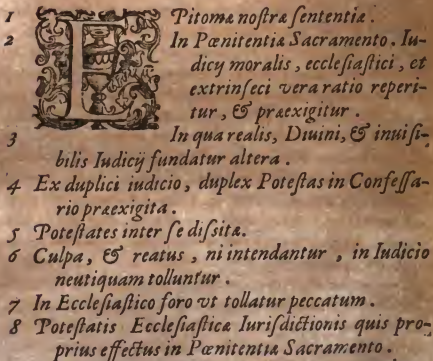 1 EPitomæ noſtræ ſententiæ.
2 In Pœnitentiæ Sacramento. Iu-
dicÿ moralis, eccleſiaſtici, et
extrinſeci vera ratio reperi-
tur, & præexigitur.
3 In qua realis, Diuini, & inuiſi-
bilis Iudicÿ fundatur altera.
4 Ex duplici iudicio, duplex Poteſtas in Confeſſa-
rio præexigita.
5 Poteſtates inter ſe diſſitæ.
6 Culpa, & reatus, ni intendantur, in Iudicio
neutiquam tolluntur.
7 In Eccleſiaſtico foro vt tollatur peccatum.
8 Poteſtatis Eccleſiaſticæ Iuriſdictionis quis pro-
prius effectus in Pœnitentiæ Sacramento.